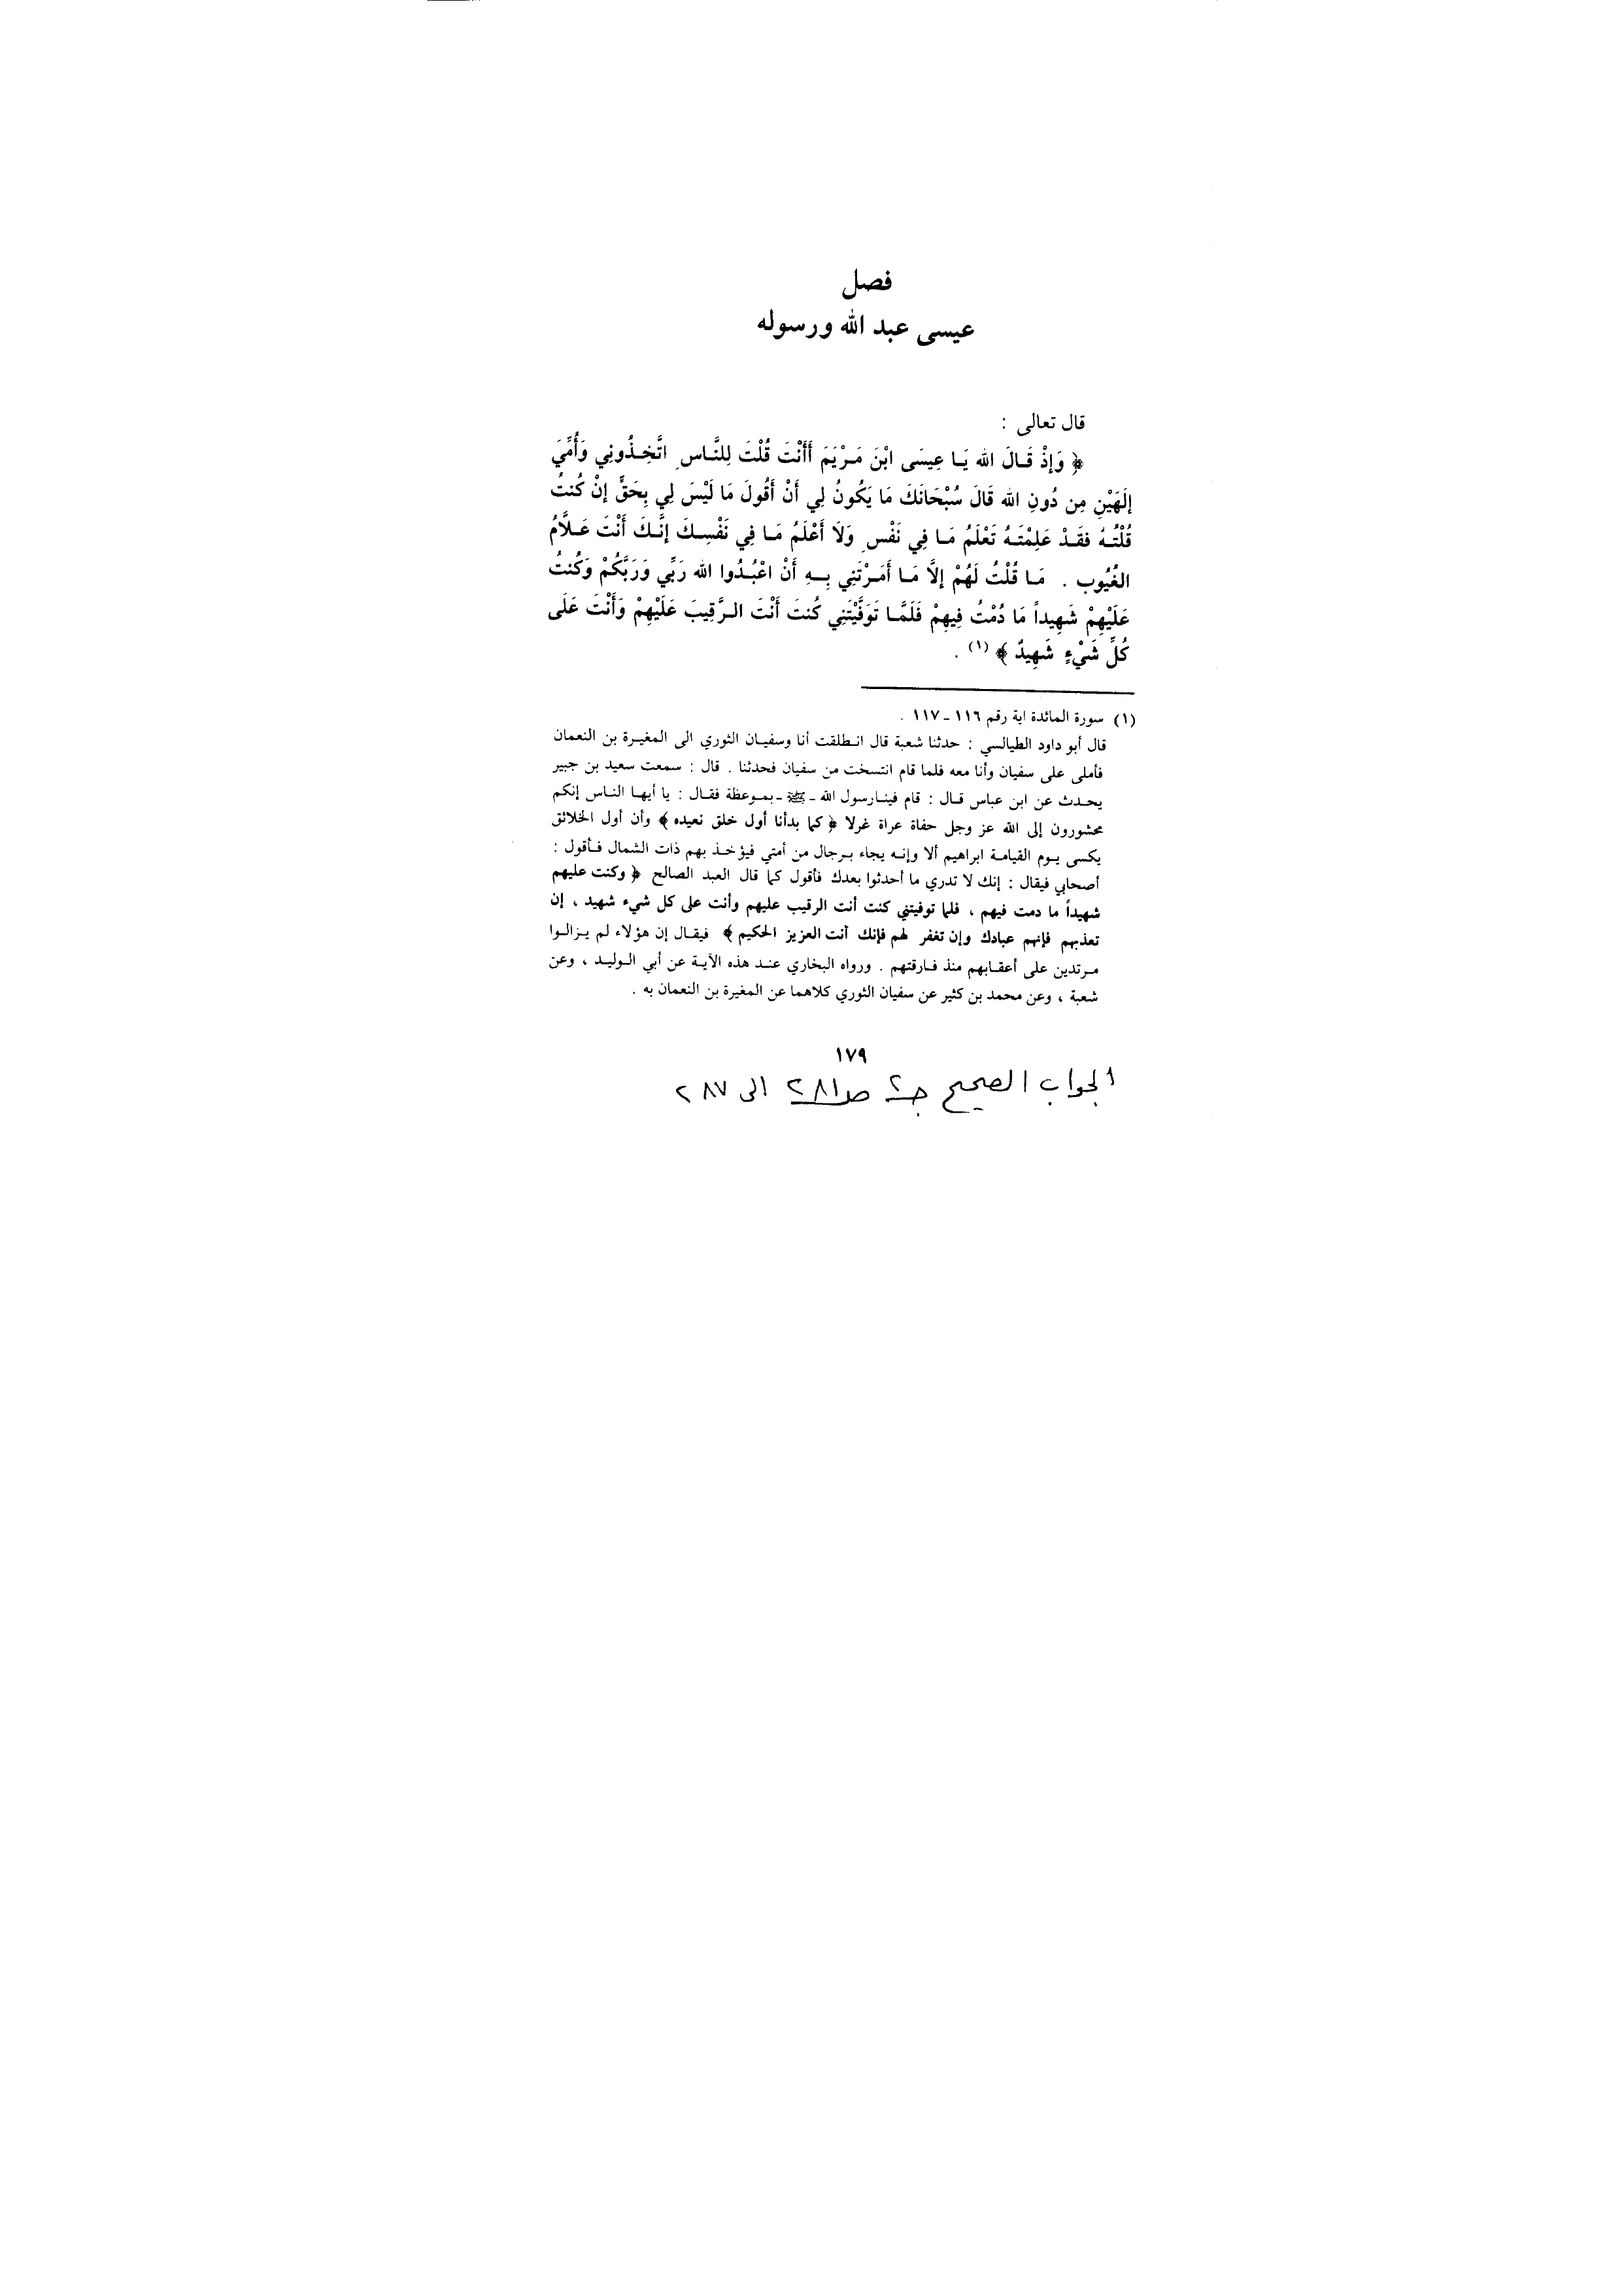 فصل
عيسى عبد الله ورسوله
قال تعالى :
﴿ وَإِذْ قَـالَ الله يَـا عِيسَى ابْنَ مَـرْيَمَ أَأَنْتَ قُلْتَ لِلنَّـاسِ اتَّخِـذُونِي وَأُمِّيَ
إِلَهَيْنِ مِن دُونِ الله قَالَ سُبْحَانَكَ مَا يَكُونُ لِي أَنْ أَقُولَ مَا لَيْسَ لِي بِحَقٍّ إِنْ كُنتُ
قُلْتُـهُ فَقَـدْ عَلِمْتَـهُ تَعْلَمُ مَـا فِي نَفْسِ وَلَا أَعْلَمُ مَـا فِي نَفْسِـكَ إِنَّـكَ أَنْتَ عَـلَّامُ
الغُيُوب . مَـا قُلْتُ لَهُمْ إِلَّا مَـا أَمَـرْتَنِي بِـهِ أَنْ اعْبُـدُوا الله رَبِّي وَرَبَّكُمْ وَكُنتُ
عَلَيْهِمْ شَهِيداً مَا دُمْتُ فِيهِمْ فَلَمَّـا تَوَفَّيْتَنِي كُنتَ أَنْتَ الـرَّقِيبَ عَلَيْهِمْ وَأَنْتَ عَلَى
كُلِّ شَيْءٍ شَهِيدٌ ﴾ (١) .
(١) سورة المائدة اية رقم ١١٦ ـ ١١٧ .
قال أبو داود الطيالسي : حدثنا شعبة قال انـطلقت أنا وسفيـان الثوري الى المغيـرة بن النعمان
فأملى على سفيان وأنا معه فلما قام انتسخت من سفيان فحدثنا . قال : سمعت سعيد بن جبير
يحـدث عن ابن عباس قـال : قام فينـارسول الله ـ ﷺ ـ بمـوعظة فقـال : يا أيهـا النـاس إنكم
محشورون إلى الله عز وجل حفاة عراة غرلا ﴿ كما بدأنا أول خلق نعيده ﴾ وأن أول الخلائق
يكسى يـوم القيامـة ابراهيم ألا وإنـه يجاء بـرجال من أمتي فيؤخـذ بهم ذات الشمال فـأقول :
أصحابي فيقال : إنك لا تدري ما أحدثوا بعدك فأقول كما قال العبد الصالح ﴿ وكنت عليهم
شهيداً ما دمت فيهم ، فلما توفيتني كنت أنت الرقيب عليهم وأنت على كل شيء شهيد ، إن
تعذبهم فإنهم عبادك وإن تغفر لهم فإنك أنت العزيز الحكيم ﴾ فيقـال إن هؤلاء لم يـزالـوا
مـرتدين على أعقـابهم منذ فـارقتهم . ورواه البخاري عنـد هذه الآيـة عن أبي الـوليـد ، وعن
شعبة ، وعن محمد بن كثير عن سفيان الثوري كلاهما عن المغيرة بن النعمان به .
١٧٩
الجواب الصحيح جـ٢ صـ٢٨١ الى ٢٨٧